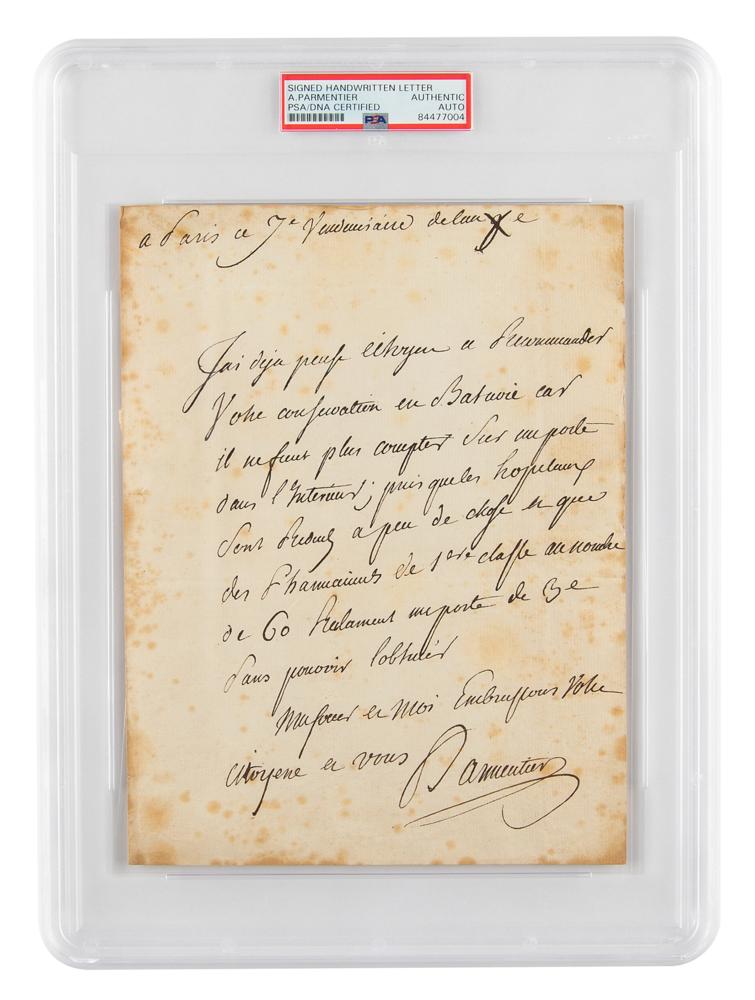 SIGNED HANDWRITTEN LETTER
A.PARMENTIER AUTHENTIC
PSA/DNA CERTIFIED AUTO
PSA 84477004
a Paris ce 7e Vendemiaire de lan e
Jai deja pensé citoyen a Recommander
Votre conservation en Batavie car
il ne faut plus compter Sur un poste
dans l'Interieur; puisque les hopitaux
Sont Reduits a peu de chose et que
des Pharmaciens de 1ere classe au nombre
de 60 Reclament un poste de 3e
Sans pouvoir lobtenir
Ma soeur et Moi Embrassons Votre
citoyene et vous Parmentier